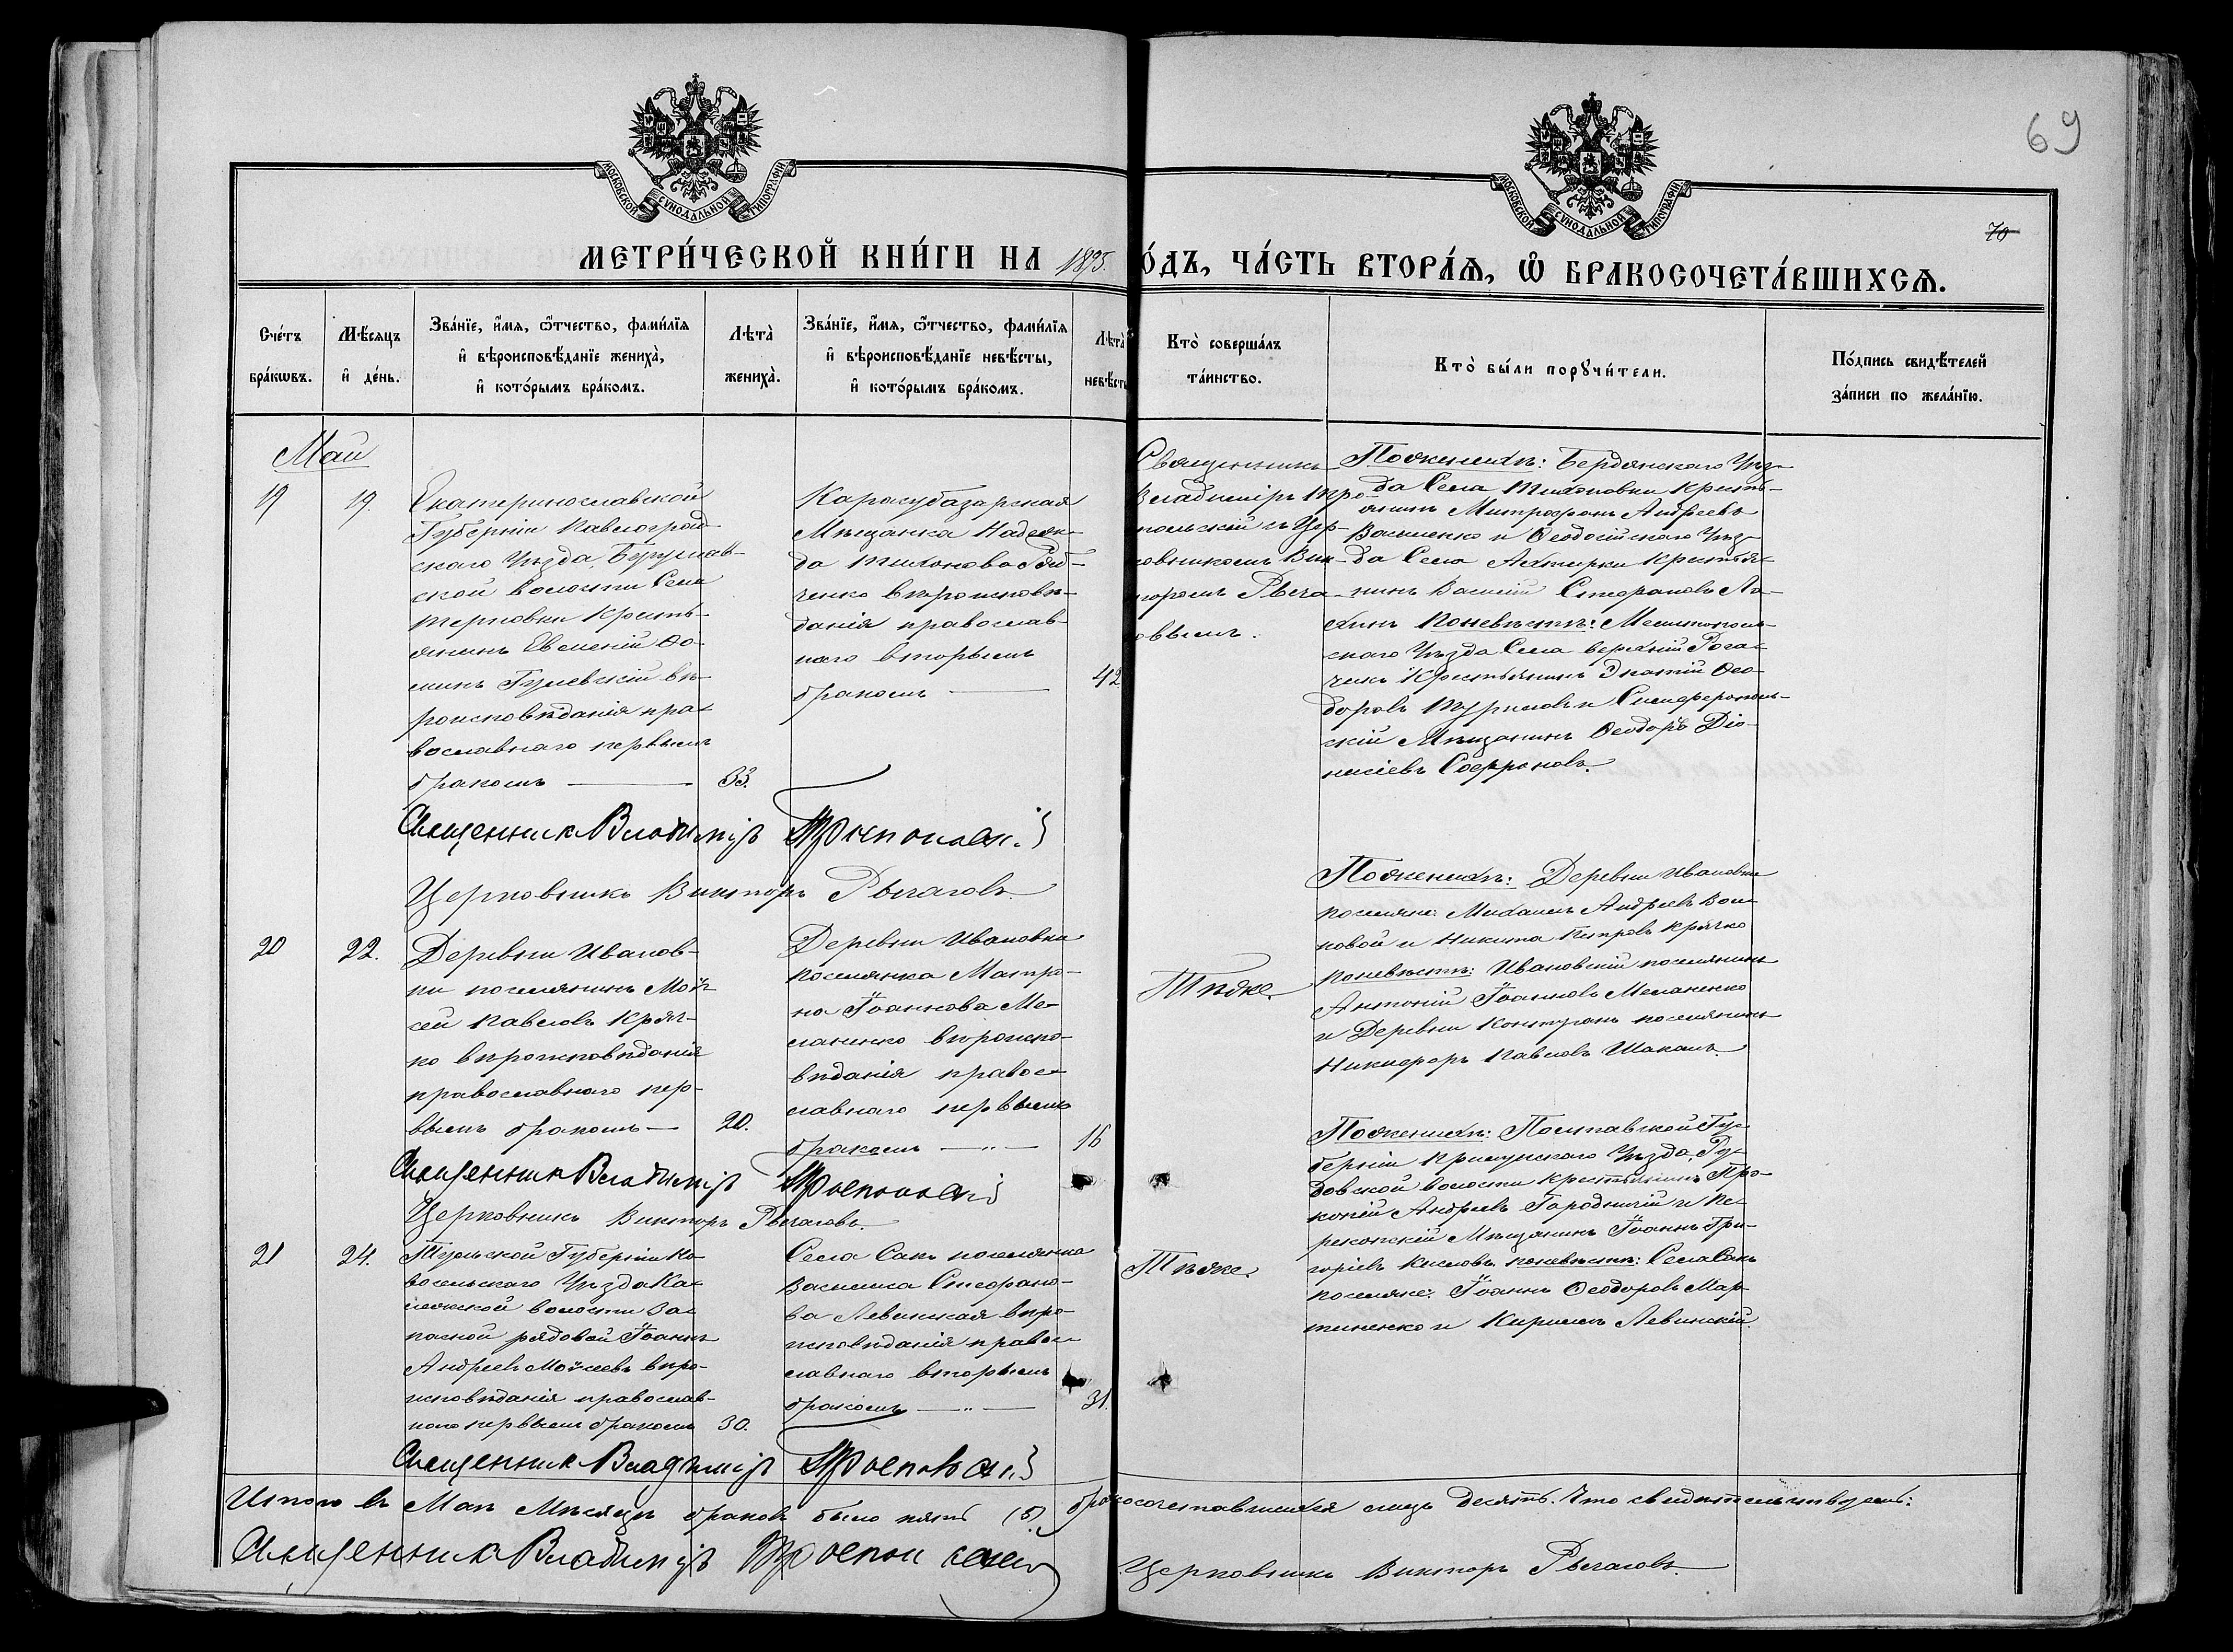 69
70
МОСКОВСКОЙ СѴНОДАЛЬНОЙ ТИПОГРАФІИ
МОСКОВСКОЙ СѴНОДАЛЬНОЙ ТИПОГРАФІИ
МЕТРИ́ЧЕСКОЙ КНИ́ГИ НА 1895.
О́ДЪ, ЧА́СТЬ ВТОРА́Ѧ, Ѡ҆ БРАКОСОЧЕТА́ВШИХСѦ.
Сче́тъ
бра́кѡвъ.
Мѣ́сяцъ
и҆ де́нь.
Зва́нїе, и҆́мѧ, ѻ҆́тчество, фами́лїѧ
и҆ вѣроисповѣ́данїе жениха̀,
и҆ кото́рымъ бра́комъ.
Лѣта̀
жениха̀.
Зва́нїе, и҆́мѧ, ѻ҆́тчество, фами́лїѧ
и҆ вѣроисповѣ́данїе невѣ́сты,
и҆ кото́рымъ бра́комъ.
Лѣта̀
невѣ́сты
Кто̀ соверша́лъ
та́инство.
Кто̀ бы́ли порꙋчи́тели.
По́дпись свидѣ́телей
за́писи по жела́нїю.
Май
19
19.
Екатеринославской
Губерніи Павлоград-
скаго Уѣзда,
ской волости Села
Терновки Кресть-
янинъ Евменій Ѳо-
минъ Гулевскій вѣ-
роисповѣданія пра-
вославнаго первымъ
бракомъ
33.
Карасубазарская
Мѣщанка Надеж-
да Тихонова
ченко вѣроисповѣ-
данія православ-
наго вторымъ
бракомъ
42
Священникъ
Владиміръ Тро-
польскій съ Цер-
ковникомъ Вик-
торомъ Рыча-
овымъ.
По женихѣ: Бердянскаго Уѣз-
да Села Тихоновки Кресть-
янинъ Митрофанъ Андреевъ
Василенко и Ѳеодосійскаго Уѣз-
да Села Ахтырки Крестья-
нинъ Василій Стефановъ Ло-
хинъ По невѣстѣ: Мелитополь-
скаго Уѣзда Села Верхній Рога-
чикъ Крестьянинъ Игнатій Ѳео-
доровъ Турчиловъ и Симферополь-
скій Мѣщанинъ Ѳеодоръ Діо-
нисіевъ Софроновъ.
Священникъ Владиміръ Тропольскій
Церковникъ Викторъ Рычаговъ.
20
22.
Деревни Иванов-
ки поселянинъ Мой-
сей Павловъ Кряч-
ко вѣроисповѣданія
православнаго пер-
вымъ бракомъ
20.
Деревни Ивановки
поселянка Матро-
на Іоаннова Ме-
ланенко вѣроиспо-
вѣданія правос-
лавнаго первымъ
бракомъ
16
Тѣже.
По женихѣ: Деревни Ивановки
поселяне: Михаилъ Андреевъ Вол-
ковой и Никита Петровъ Крячко
по невѣстѣ: Ивановскій поселянинъ
Антоній Іоанновъ Меланенко
и Деревни Контуганъ поселянинъ
Никифоръ Павловъ Шакалъ.
Священникъ Владиміръ Тропольскій
Церковникъ Викторъ Рычаговъ.
21
24.
Тульской Губерніи Но-
восильскаго Уѣзда Ка-
волости За-
пасной рядовой Іоаннъ
Андреевъ Мойсеевъ вѣро-
исповѣданія православ-
наго первымъ бракомъ
30.
Села Сакъ поселянка
Василиса Стефано-
ва Левинская вѣро-
исповѣданія право-
славнаго вторымъ
бракомъ
31.
Тѣже.
По женихѣ: Полтавской Гу-
берніи Прилукскаго Уѣзда,
довской волости Крестьянинъ Про-
копій Андреевъ Городничій и Пе-
рекопскій Мѣщанинъ Іоаннъ Гри-
горіевъ Кисловъ. по невѣстѣ: Села Сакъ
поселяне: Іоаннъ Ѳеодоровъ Мар-
тиненко и Кириллъ Левинскій.
Священникъ Владиміръ Тропольскій
Итого въ Маѣ Мѣсяцѣ браковъ было пять (5) бракосочетавшихся лицъ десять. Что свидѣтельствуемъ:
Священникъ Владиміръ Тропольскій
Церковникъ Викторъ Рычаговъ.